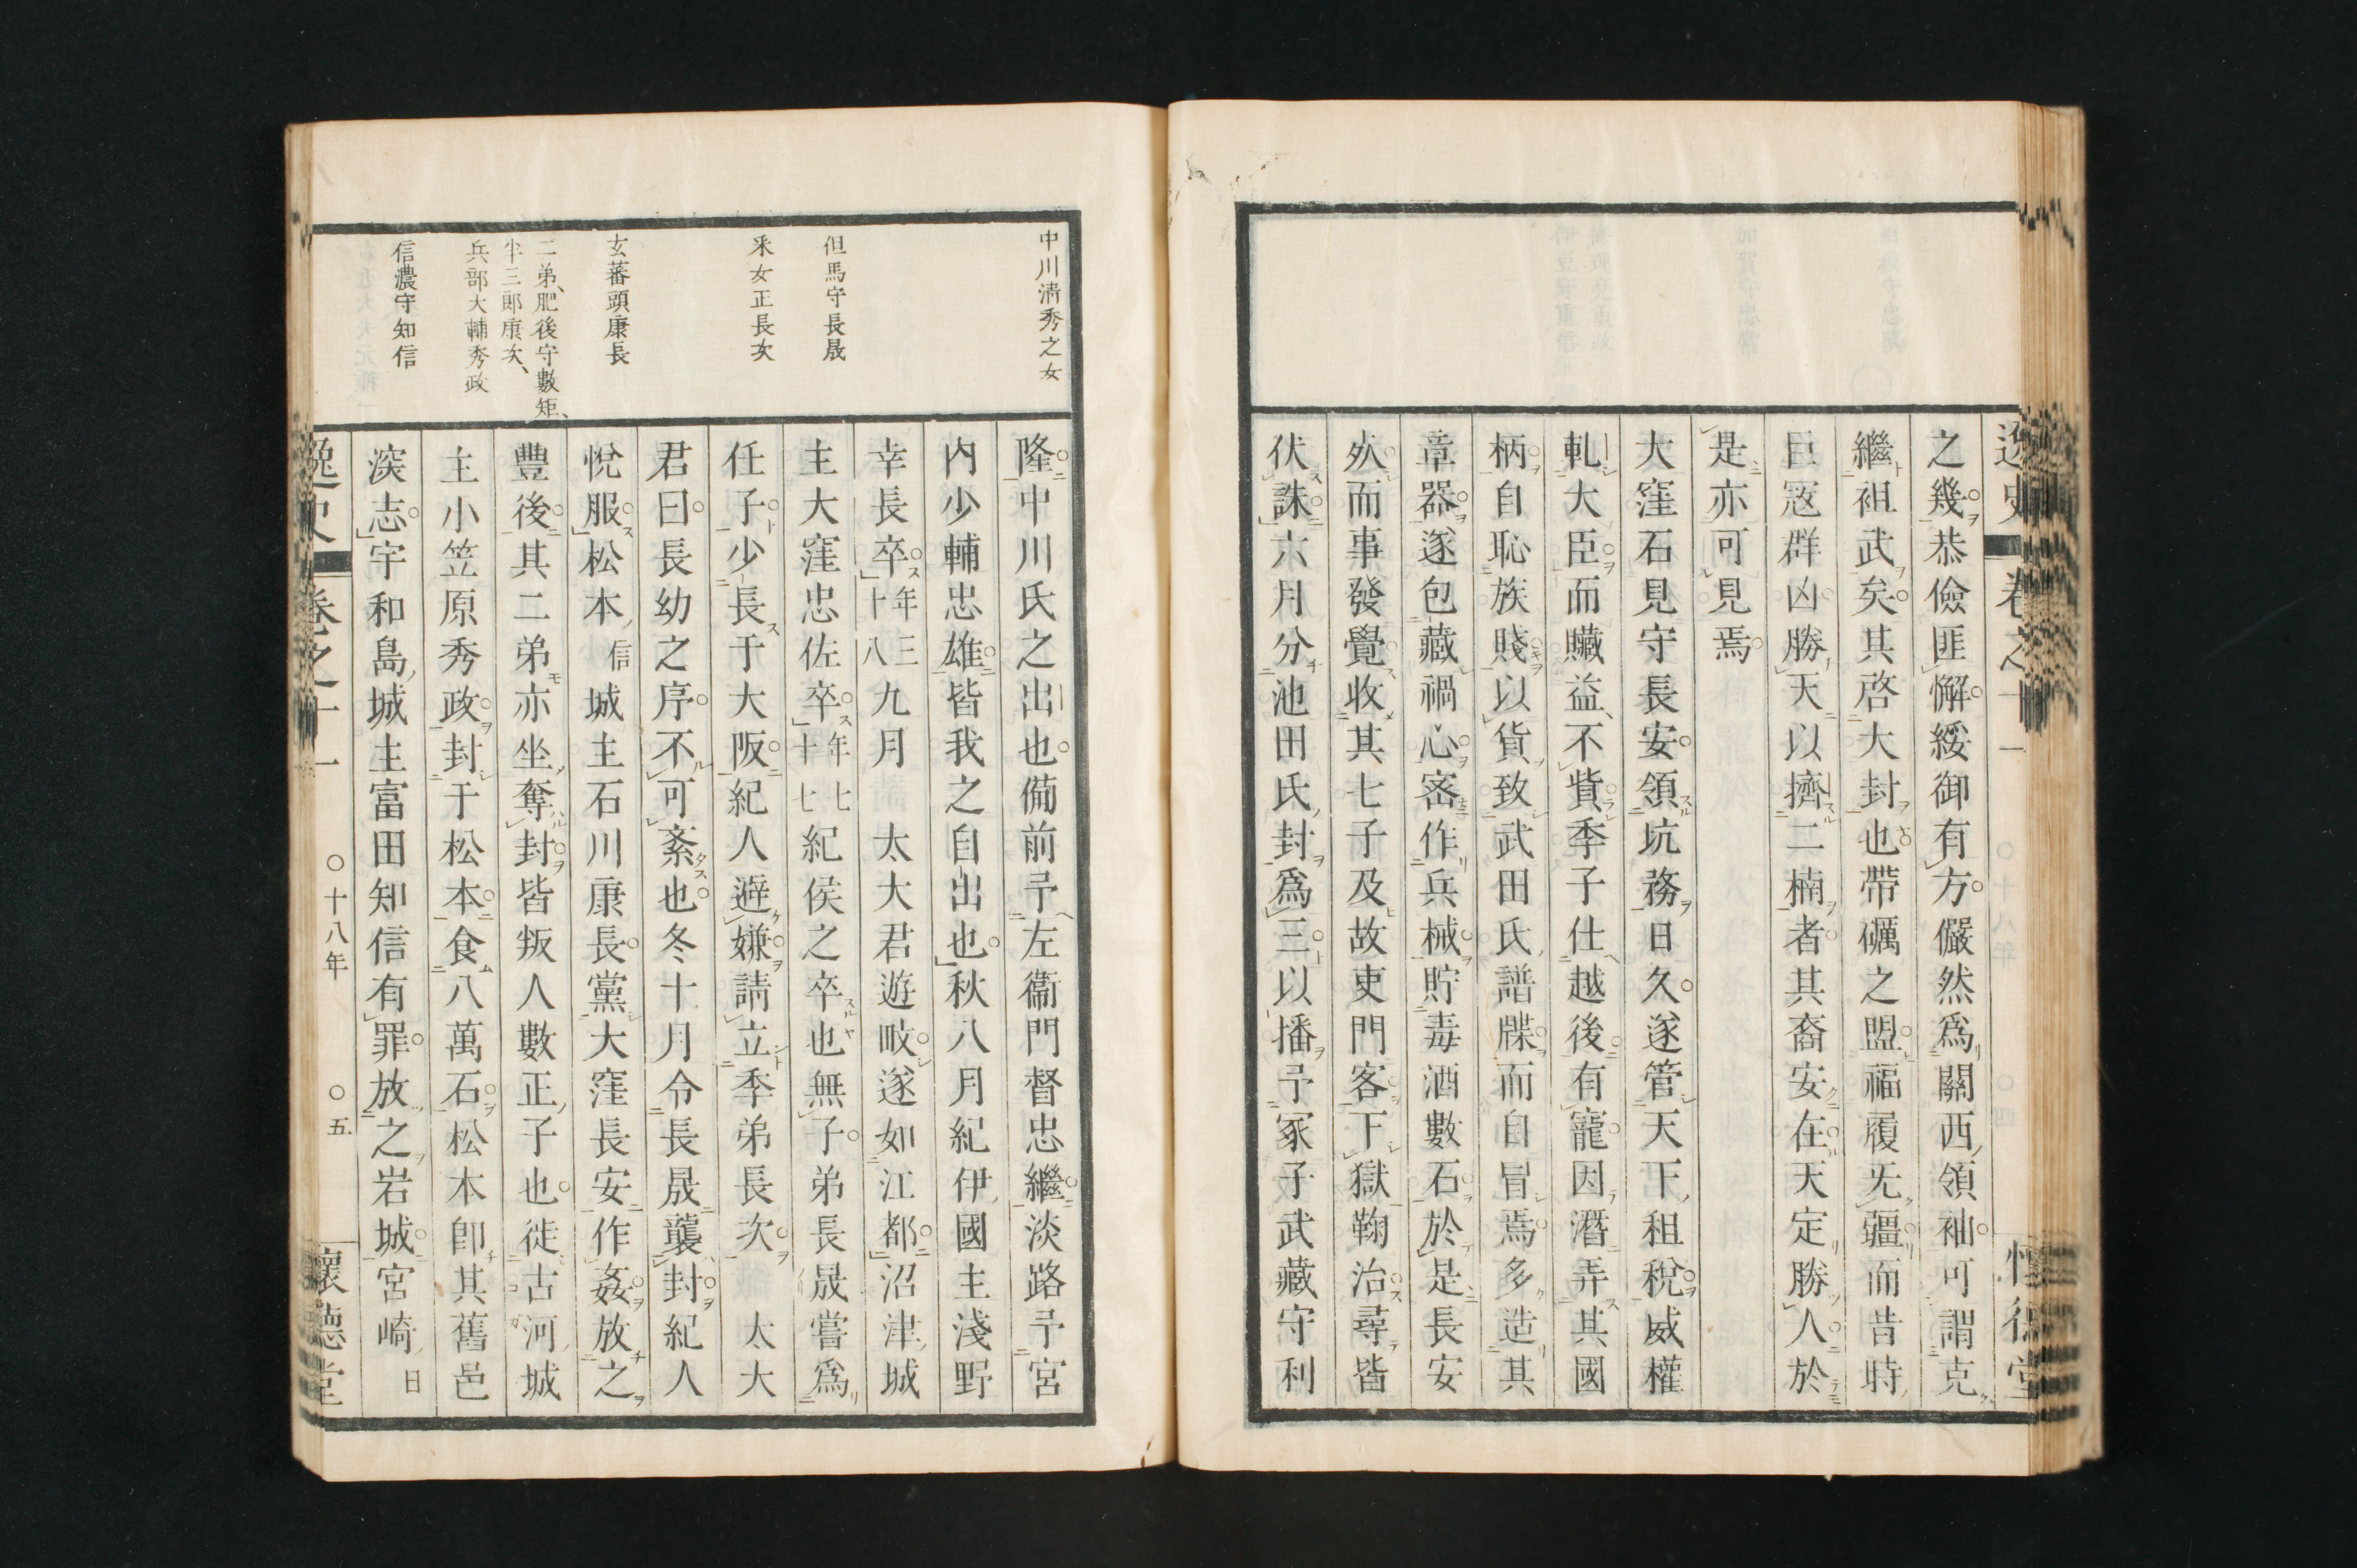 逸史
卷之十一
懷德堂
之幾恭儉匪懈綏御有方儼然爲關西領袖可謂克
繼祖武矣其啓大封也帶礪之盟福履无疆而昔時
巨寇群凶勝天以擠二楠者其裔安在天定勝人於
是亦可見焉
大窪石見守長安領坑務日久遂管天下租稅威權
軋大臣而贓益不貲季子仕越後有寵因潛弄其國
柄自恥族賤以貨致武田氏譜牒而自冒焉多造其
章器遂包藏禍心密作兵械貯毒酒數石於是長安
死而事發覺收其七子及故吏門客下獄鞠治尋皆
伏誅六月分池田氏封爲三以播予冢子武藏守利
中川清秀之女
但馬守長晟
釆女正長次
玄蕃頭康長
二弟、肥後守數矩、
半三郎康次、
兵部大輔秀政
信濃守知信
隆中川氏之出也備前予左衞門督忠繼淡路予宮
内少輔忠雄皆我之自出也秋八月紀伊國主淺野
幸長卒年三十八九月 太大君遊畋遂如江都沼津城
主大窪忠佐卒年七十七紀侯之卒也無子弟長晟嘗爲
任子少長于大阪紀人避嫌請立季弟長次 太大
君曰長幼之序不可紊也冬十月令長晟襲封紀人
悅服松本信城主石川康長黨大窪長安作姦放之
豐後其二弟亦坐奪封皆叛人數正子也徙古河城
主小笠原秀政封于松本食八萬石松本卽其舊邑
深志宇和島城主富田知信有罪放之岩城宮崎日
逸史
卷之十一
○十八年
○五
懷德堂